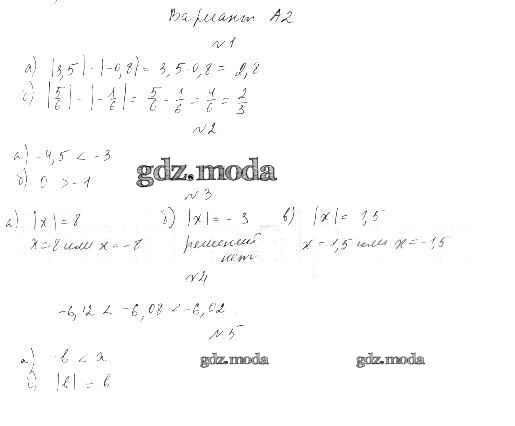 Вариант А2
№1
а) |3,5| · |-0,8| = 3,5·0,8 = 2,8
б) |5/6| - |-1/6| = 5/6 - 1/6 = 4/6 = 2/3
№2
а) -4,5 < -3
б) 0 > -1
gdz.moda
№3
а) |x| = 8 б) |x| = -3 в) |x| = 1,5
x = 8 или x = -8 решений нет x = 1,5 или x = -1,5
№4
-6,12 < -6,08 < -6,02
№5
а) b < a
б) |b| = b
gdz.moda gdz.moda